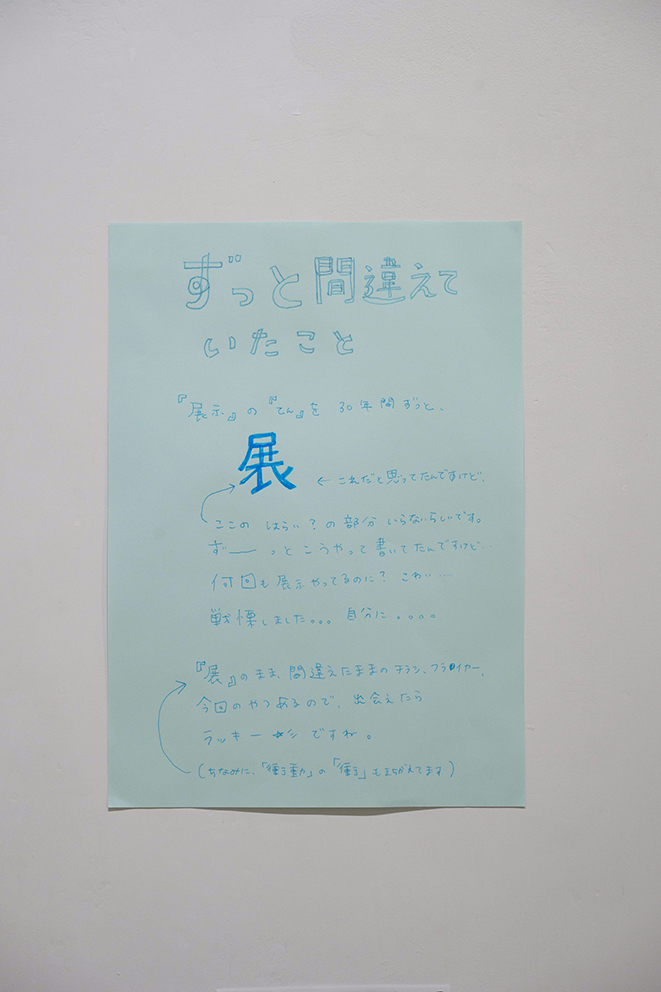 ずっと間違えて
いたこと
『展示』の『てん』を 30年間ずっと、
展 ← これだと思ってたんですけど、
ここの はらい？の部分 いらないらしいです。
ず——っとこうやって書いてたんですけど…
何回も展示やってるのに？ こわい…
戦慄しました。。。 自分に 。。。。
『展』のまま、間違えたままのチラシ、フライヤー、
今回のやつあるので、出会えたら
ラッキー☆彡 ですね。
(ちなみに、「衝動」の「衝」もまちがえてます)